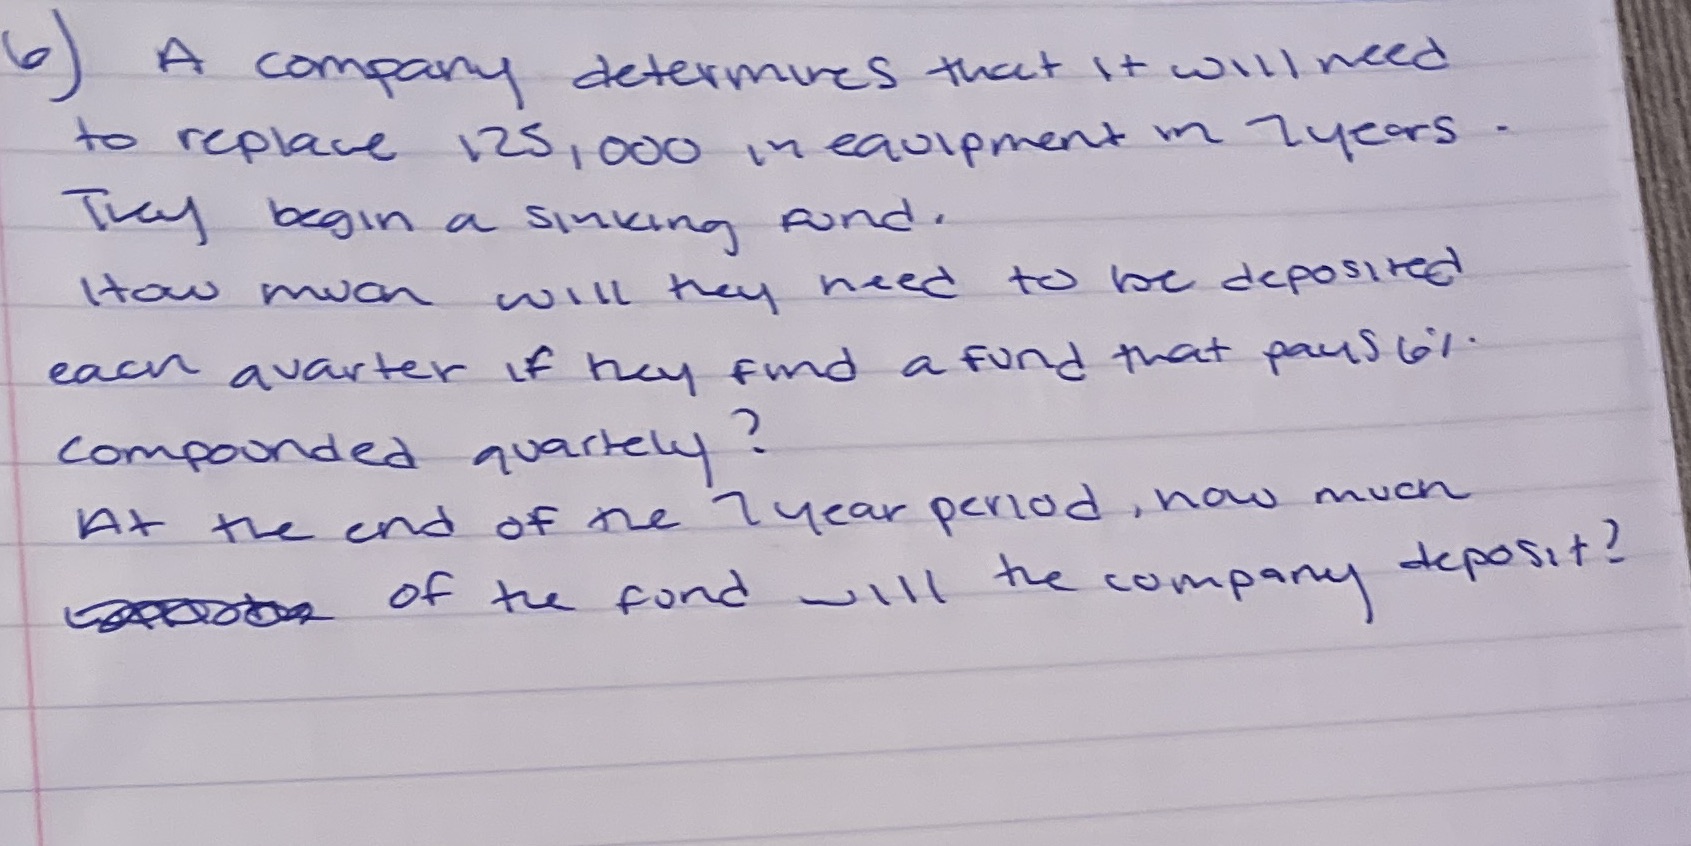 6) A company determines that it will need
to replace 125,000 in equipment in 7 years.
They begin a sinking fund.
How much will they need to be deposited
each quarter if they find a fund that pays 6%
compounded quartely?
At the end of the 7 year period, how much
of the fund will the company deposit?